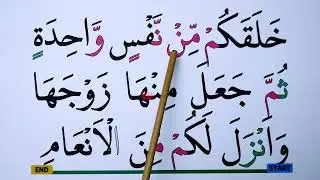 خَلَقَكُمْ مِّنْ نَّفْسٍ وَّاحِدَةٍ
ثُمَّ جَعَلَ مِنْهَا زَوْجَهَا
وَاَنْزَلَ لَكُمْ مِّنَ الْاَنْعَامِ
END START